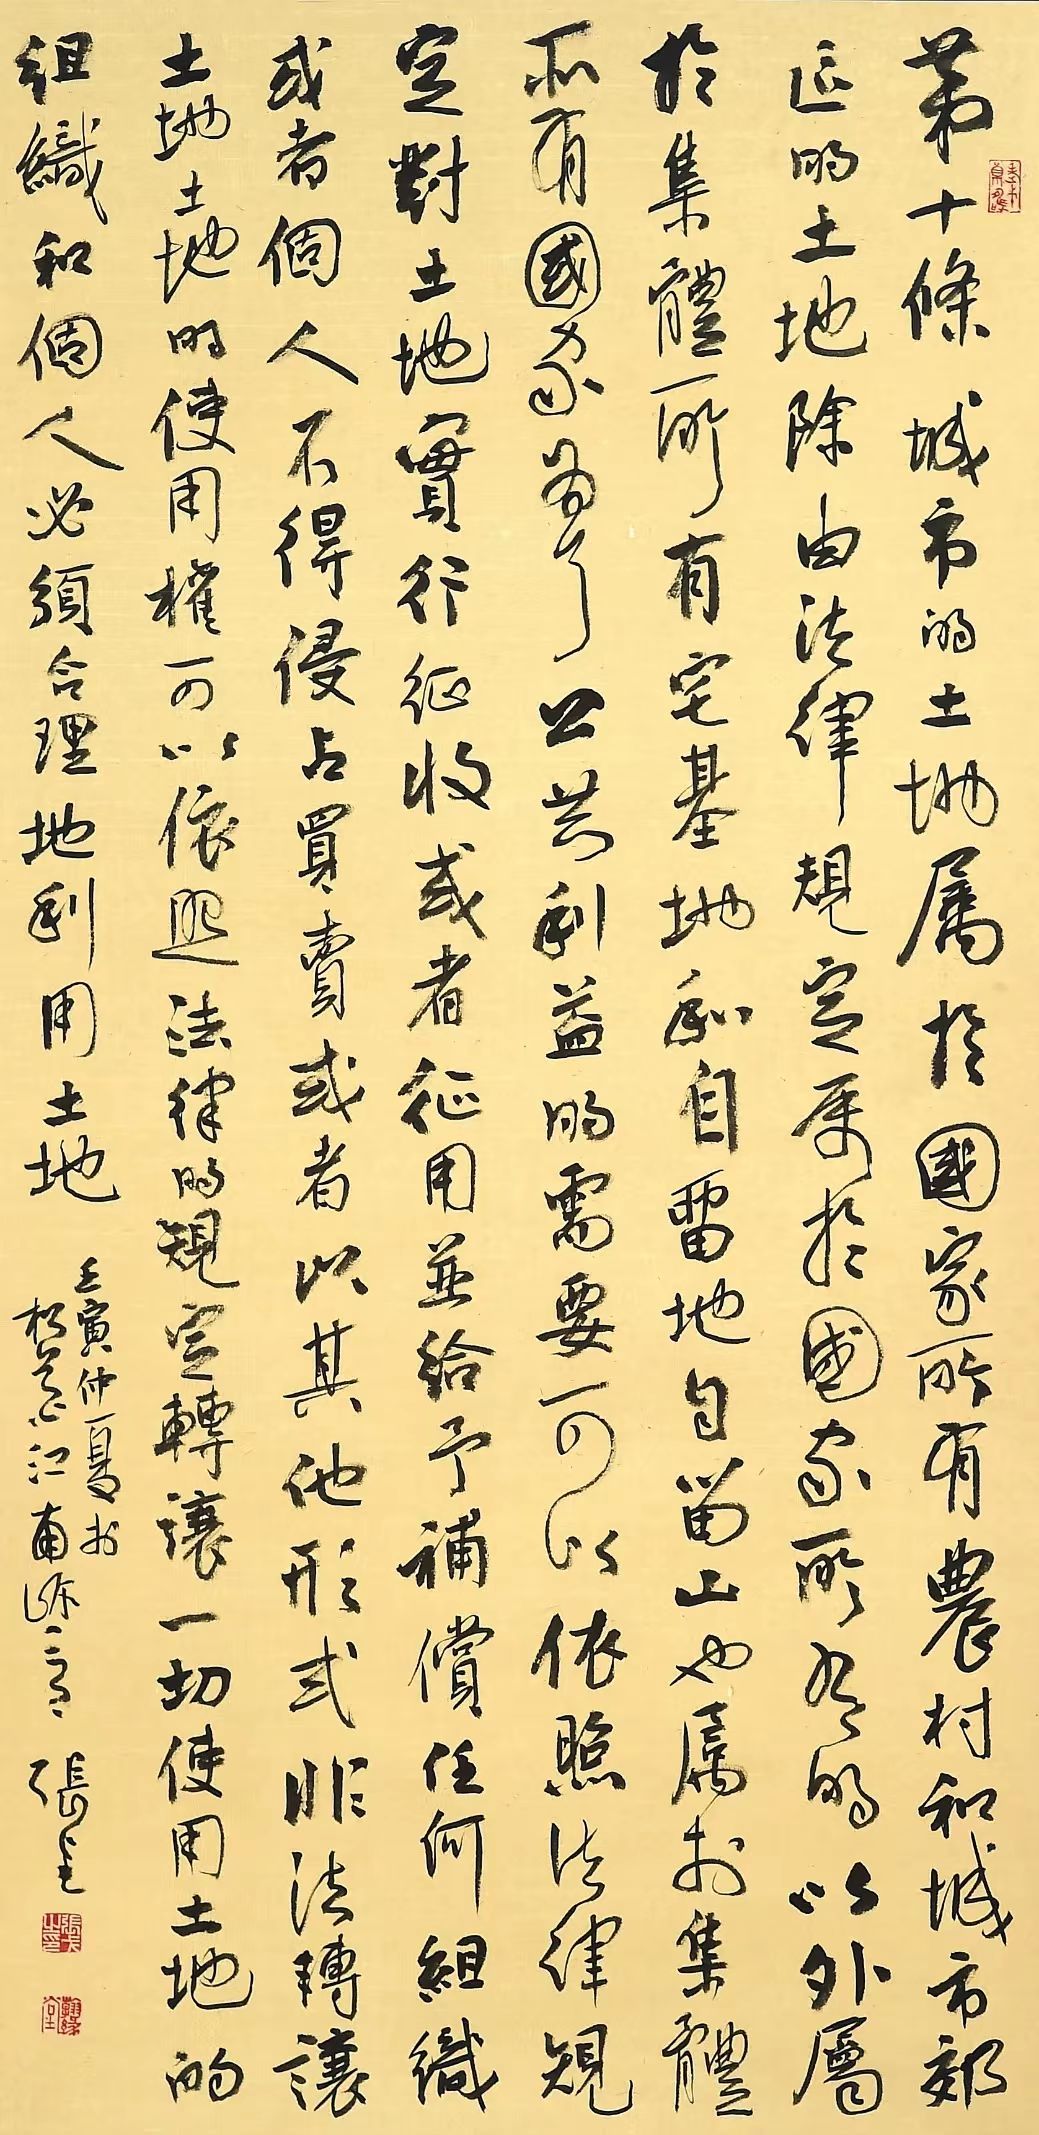 第十條城市的土地属於國家所有農村和城市郊
區的土地除由法律規定属於國家所有的以外屬
於集體所有宅基地和自畱地自畱山也属於集體
所有國家為了公共利益的需要可以依照法律規
定對土地實行征收或者征用並給予補償任何組織
或者個人不得侵占買賣或者以其他形式非法轉讓
土地土地的使用權可以依照法律的規定轉讓一切使用土地的
組織和個人必須合理地利用土地
壬寅仲夏於
松江南
張